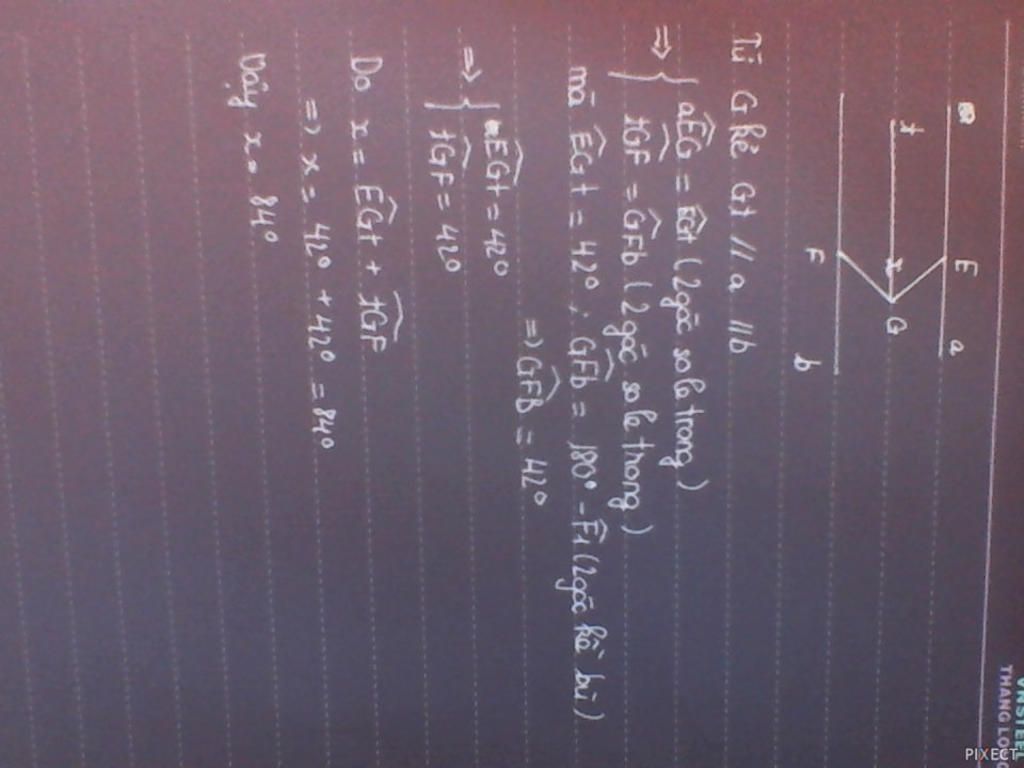 E a
t x G
F b
Từ G kẻ Gt // a // b
⇒ { aEG = EGt (2 góc so le trong)
tGF = GFb (2 góc so le trong)
mà EGt = 42° ; GFb = 180° - F1 (2 góc kề bù)
⇒ GFb = 42°
⇒ { EGt = 42°
tGF = 42°
Do x = EGt + tGF
⇒ x = 42° + 42° = 84°
Vậy x = 84°
VNSTEEL
THANG LONG
PIXECT